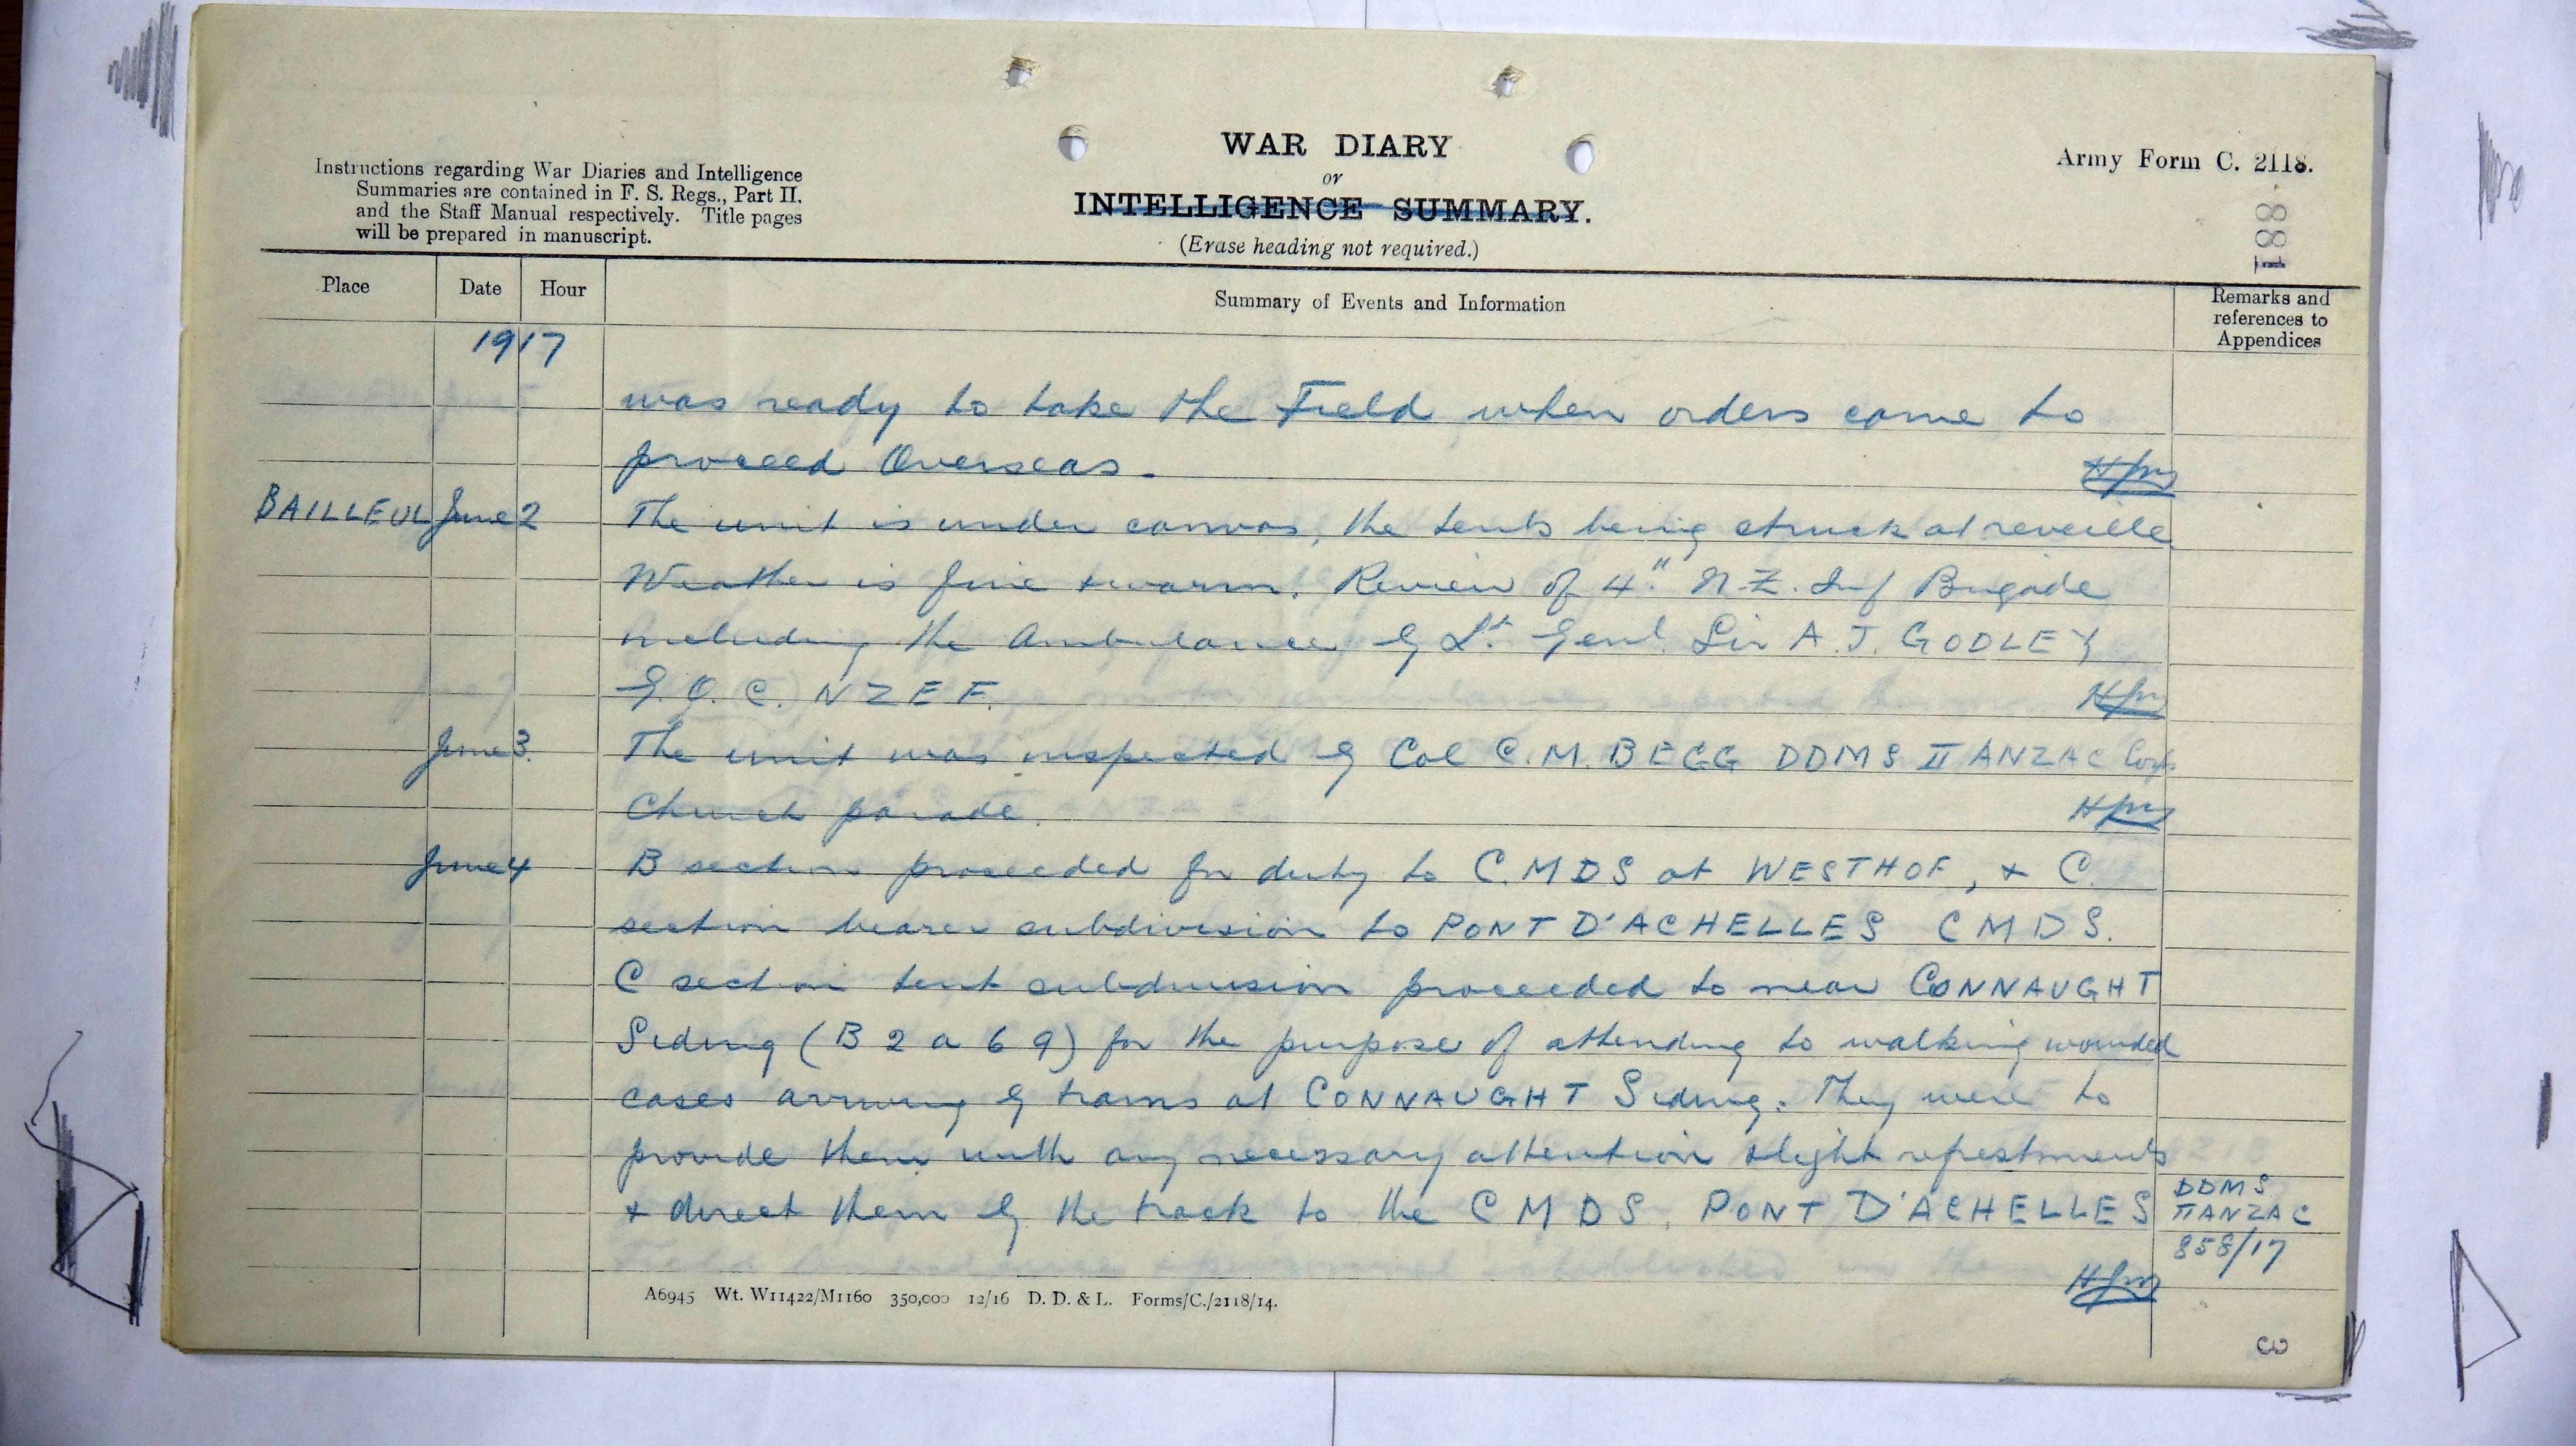 Instructions regarding War Diaries and Intelligence
Summaries are contained in F. S. Regs., Part II.
and the Staff Manual respectively. Title pages
will be prepared in manuscript.
WAR DIARY
or
INTELLIGENCE SUMMARY.
(Erase heading not required.)
Army Form C. 2118.
188
Place Date Hour Summary of Events and Information Remarks and references to Appendices
1917
was ready to take the Field when orders came to
proceed Overseas.
BAILLEUL June 2 The unit is under canvas, the tents being struck at reveille
Weather is fine & warm. Review of 4" N.Z. Inf Brigade
including the Ambulance by Lt. Genl. Sir A. J. GODLEY
G. O. C. N Z E F.
June 3. The unit was inspected by Col C. M. BEGG DDMS II ANZAC Corps
Church parade.
June 4 B section proceeded for duty to C.M D S at WESTHOF, & C.
section bearer subdivision to PONT D'ACHELLES C M D S.
C section tent subdivision proceeded to near CONNAUGHT
Siding (B 2 a 6 9) for the purpose of attending to walking wounded
cases arriving by trams at CONNAUGHT Siding. They were to
provide them with any necessary attention & light refreshments
& direct them by the track to the C M D S. PONT D'ACHELLES
DDMS
II ANZAC
858/17
A6945 Wt. W11422/M1160 350,000 12/16 D. D. & L. Forms/C./2118/14.
3